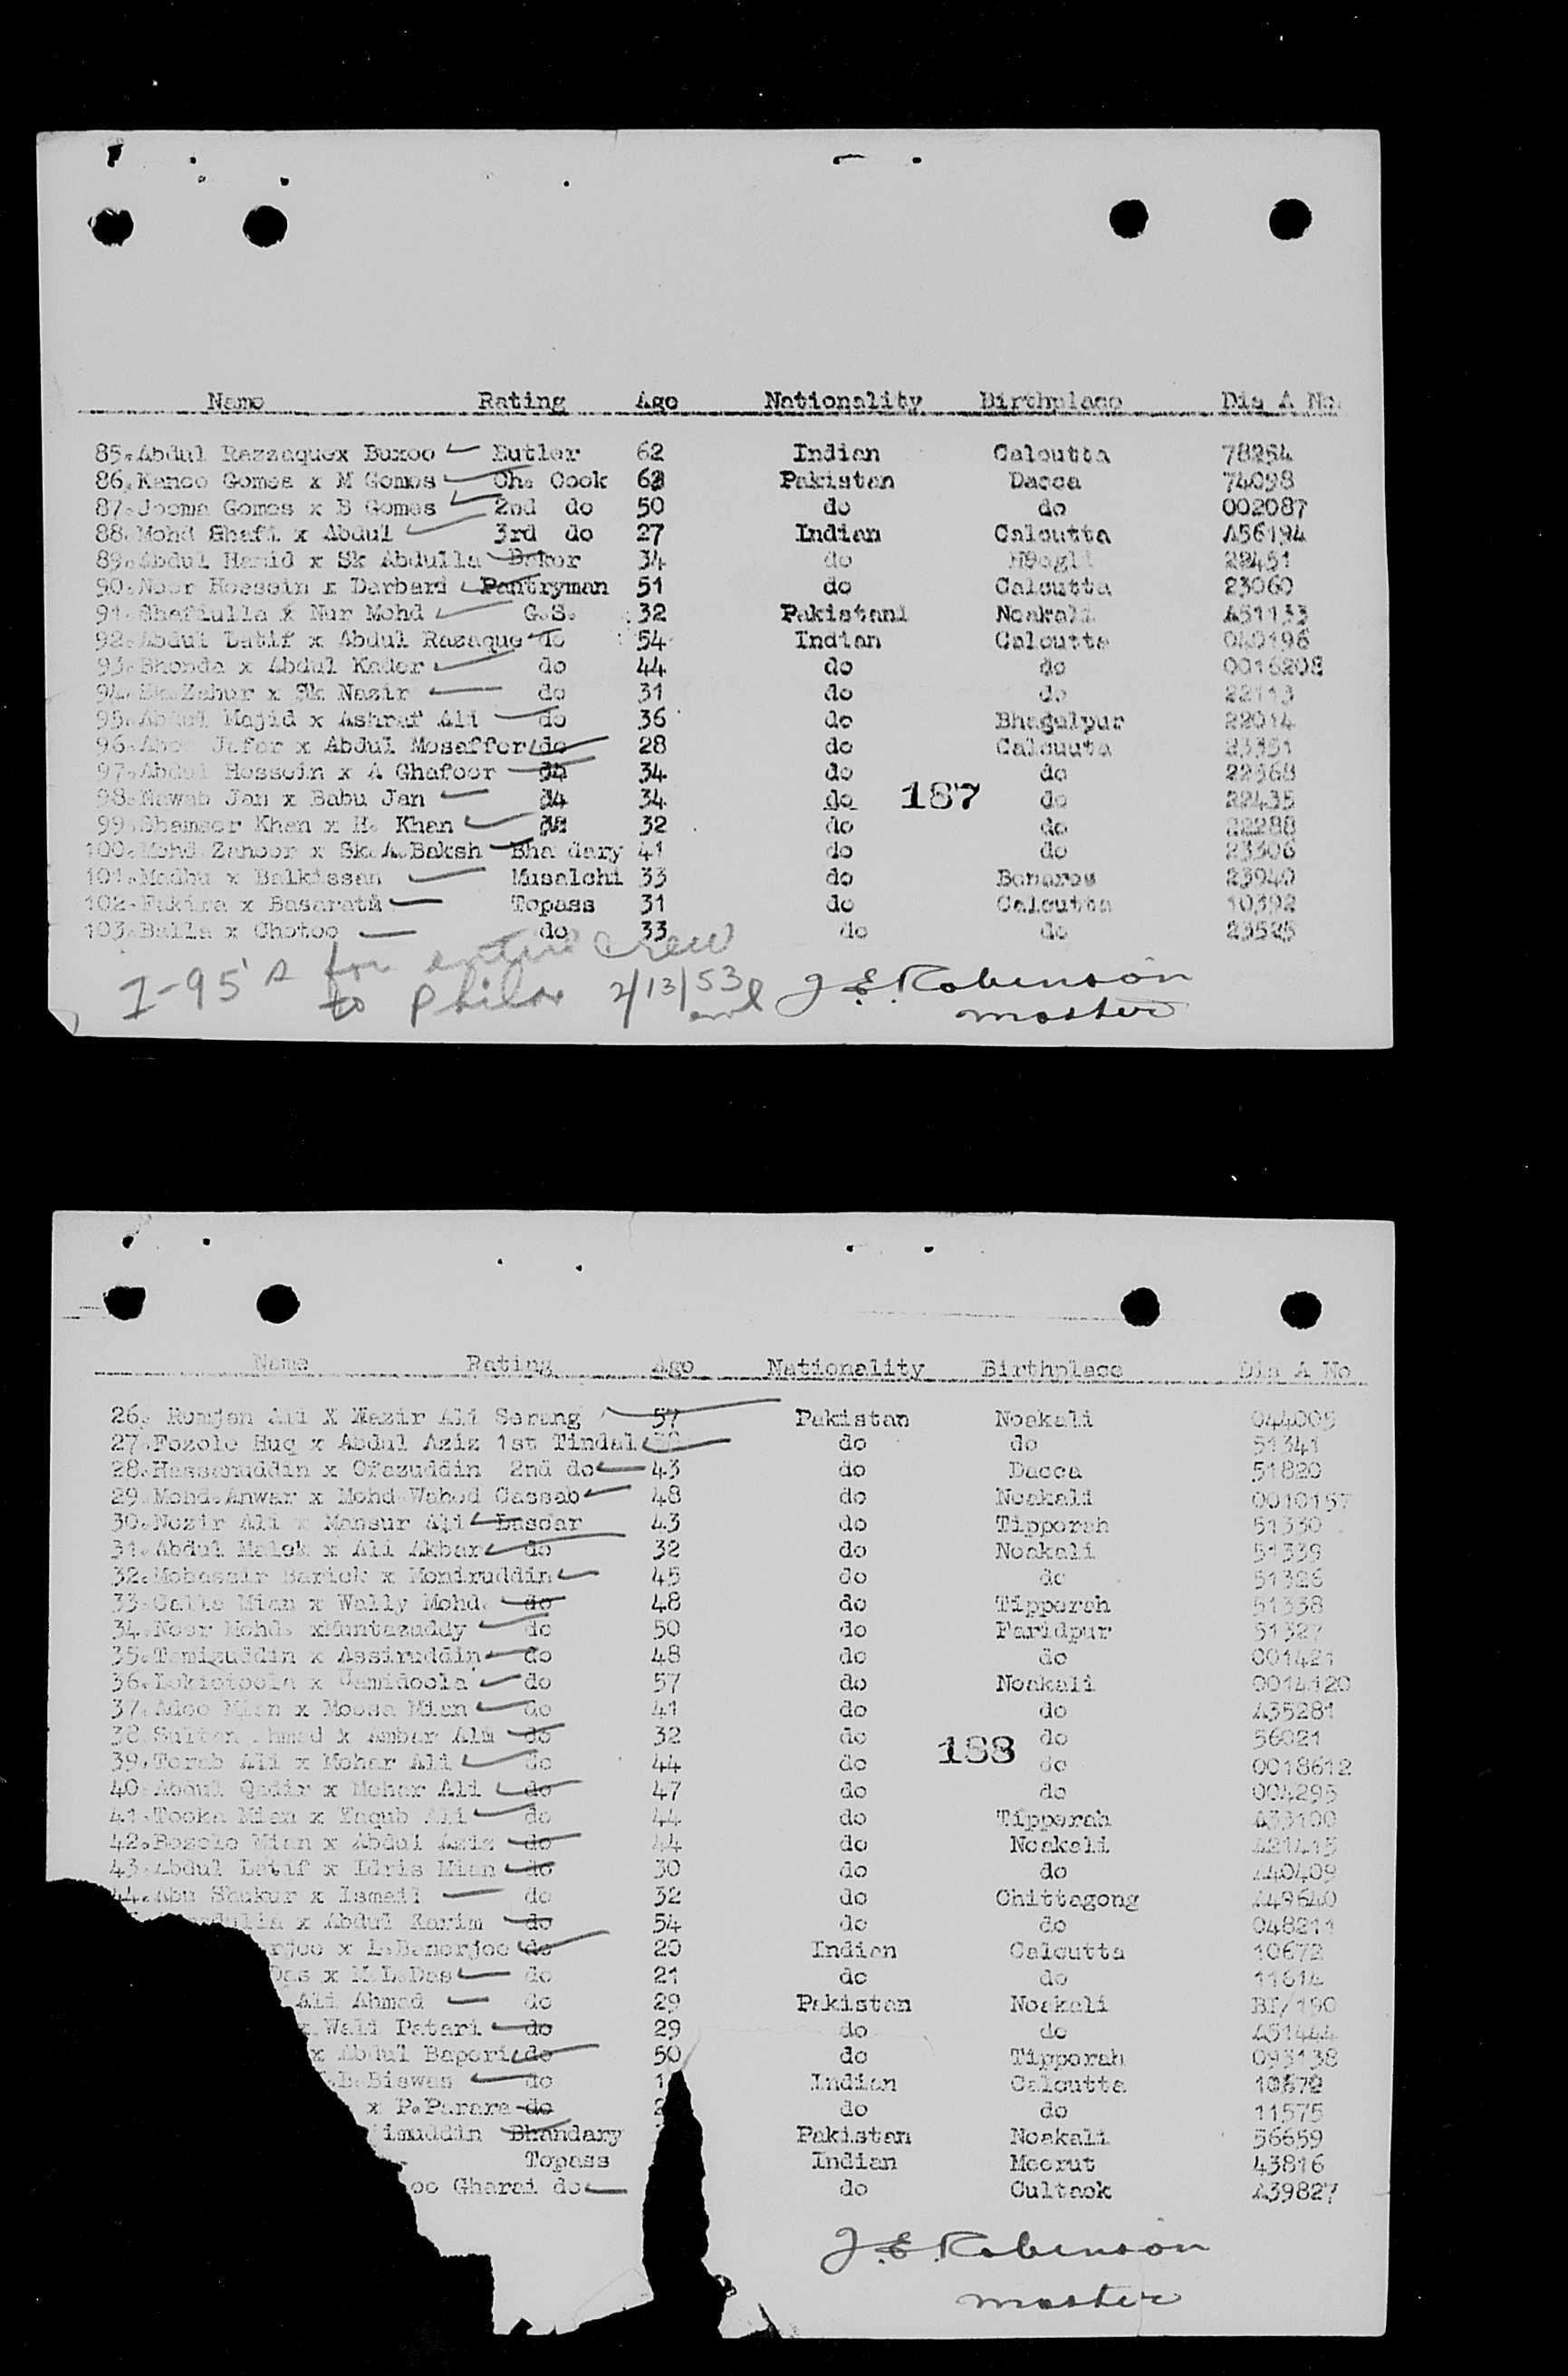 Name Rating Age Nationality Birthplace Dis A No.
85.Abdul Razzaquex Buxoo Butler 62 Indian Calcutta 78254
86.Kanoo Gomes x M Gomes Ch. Cook 62 Pakistan Dacca 74098
87.Jooma Gomes x B Gomes 2nd do 50 do do 002087
88.Mohd Shafi x Abdul 3rd do 27 Indian Calcutta A56194
89.Abdul Hamid x Sk Abdulla Baker 34 do Hoogli 22451
90.Noor Hossein x Darbari Pantryman 51 do Calcutta 23060
91.Shafiulla x Nur Mohd G.S. 32 Pakistani Noakali A51133
92.Abdul Latif x Abdul Razaque do 54 Indian Calcutta 040196
93.Bhonda x Abdul Kader do 44 do do 0016208
94.Sk.Zahur x Sk Nasir do 31 do do 22113
95.Abdul Majid x Ashraf Ali do 36 do Bhagalpur 22014
96.Aboo Jafar x Abdul Mosaffer do 28 do Calcuuta 23351
97.Abdul Hossein x A Ghafoor do 34 do do 22368
98.Nawab Jan x Babu Jan do 34 do do 22435
187
99.Shamser Khan x H. Khan do 32 do do 22288
100.Mohd Zahoor x Sk.A.Baksh Bha dary 41 do do 23306
101.Madhu x Balkissan Musalchi 33 do Banares 23940
102.Fakira x Basarata Topass 31 do Calcutta 10392
103.Balla x Chotoo do 33 do do 23525
I-95's for entire crew
to Phila 2/13/53
J.E.Robinson
master
Name Rating Age Nationality Birthplace Dis A No
26. Romjan Ali X Nazir Ali Serang 57 Pakistan Noakali 044005
27.Fozole Huq x Abdul Aziz 1st Tindal do do 51341
28.Hassenuddin x Ofazuddin 2nd do 43 do Dacca 51820
29.Mohd.Anwar x Mohd Wahed Cassab 48 do Noakali 0010157
30.Nozir Ali x Mansur Ali Lascar 43 do Tipperah 51330
31.Abdul Malek x Ali Akbar do 32 do Noakali 51339
32.Mobassir Barick x Moniruddin 45 do do 51326
33.Calla Mian x Wally Mohd. do 48 do Tipperah 51338
34.Noor Mohd. xMuntazuddy do 50 do Faridpur 51327
35.Tamizuddin x Assiruddin do 48 do do 001421
36.Lokiotoola x Uamidoola do 57 do Noakali 0014120
37.Adoo Mian x Moosa Mian do 41 do do A35281
38.Sultan Ahmad x Ambar Alm do 32 do do 56021
188
39.Torab Ali x Mohar Ali do 44 do do 0018612
40.Abdul Qadir x Mohar Ali do 47 do do 004295
41.Tooka Mian x Eaqub Ali do 44 do Tipperah A33100
42.Fozole Mian x Abdul Aziz do 44 do Noakali A21415
43.Abdul Latif x Idris Mian do 30 do do A40409
44.Abu Shukur x Ismail do 32 do Chittagong A49640
dulla x Abdul Karim do 54 do do 048211
rjee x L.Banerjee do 20 Indian Calcutta 10672
Das x M.L.Das do 21 do do 11614
Ali Ahmed do 29 Pakistan Noakali BI/190
x Wali Patari do 29 do do A51444
x Abdul Bapori do 50 do Tipperah 093138
.B.Biswas do 1 Indian Calcutta 10672
x P.Parara do 2 do do 11575
imuddin Bhandary Pakistan Noakali 56659
Topass Indian Meerut 43816
oo Gharai do do Cultack A39827
J.E.Robinson
master